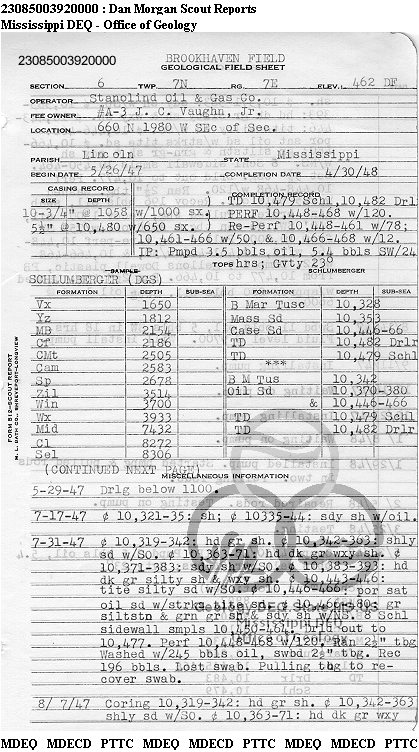 23085003920000 : Dan Morgan Scout Reports
Mississippi DEQ - Office of Geology
23085003920000
BROOKHAVEN FIELD
GEOLOGICAL FIELD SHEET
SECTION 6 TWP. 7N RG. 7E ELEV. 462 DF
OPERATOR Stanolind Oil & Gas Co.
FEE OWNER #A-3 J. C. Vaughn, Jr.
LOCATION 660 N 1980 W SEc of Sec.
PARISH Lincoln STATE Mississippi
BEGIN DATE 5/26/47 COMPLETION DATE 4/30/48
CASING RECORD COMPLETION RECORD
SIZE DEPTH ) TD 10,479 Schl,10,482 Drlr
10-3/4" @ 1058 w/1000 sx. ) PERF 10,448-468 w/120.
5½" @ 10,480 w/650 sx. ) Re-Perf 10,448-461 w/78;
10,461-466 w/50, & 10,466-468 w/12.
IP: Pmpd 3.5 bbls oil, 5.4 bbls SW/24
SAMPLE TOPS hrs; Gvty 230 SCHLUMBERGER
SCHLUMBERGER (DGS)
FORMATION DEPTH SUB-SEA FORMATION DEPTH SUB-SEA
Vx 1650 B Mar Tusc 10,328
Yz 1812 Mass Sd 10,353
MB 2154 Case Sd 10,446-66
Cf 2186 TD 10,482 Drlr
CMt 2505 TD 10,479 Schl
Cam 2583 ***
Sp 2678 B M Tus 10,342
Zil 3514 Oil Sd 10,370-380
Win 3700 & 10,446-466
Wx 3933 TD 10,479 Schl
Mid 7432 TD 10,482 Drlr
Cl 8272
Sel 8306
(CONTINUED NEXT PAGE)
MISCELLANEOUS INFORMATION
FORM 812—SCOUT REPORT
M. L. BATH CO., SHREVEPORT-LONGVIEW
5-29-47 Drlg below 1100.
7-17-47 ¢ 10,321-35: sh; ¢ 10335-44: sdy sh w/oil.
7-31-47 ¢ 10,319-342: hd gr sh. ¢ 10,342-363: shly
sd w/SO. ¢ 10,363-71: hd dk gr wxy sh. ¢
10,371-383: sdy sh w/SO. ¢ 10,383-393: hd
dk gr silty sh & wxy sh. ¢ 10,443-446:
tite silty sd w/SO. ¢ 10,446-466: por sat
oil sd w/strks tite sd. ¢ 10,466-480: gr
siltstn & grn gr sh & sdy sh w/NS. 8 Schl
sidewall smpls 10,450-464. Drld out to
10,477. Perf 10,448-468 w/120. Ran 2½" tbg
Washed w/245 bbls oil, swbd. 2½" tbg. Rec
196 bbls. Lost swab. Pulling tbg to re-
cover swab.
8/ 7/47 Coring 10,319-342: hd gr sh. ¢ 10,342-363
shly sd w/SO. ¢ 10,363-71: hd dk gr wxy
MDEQ MDECD PTTC MDEQ MDECD PTTC MDEQ MDECD PTTC